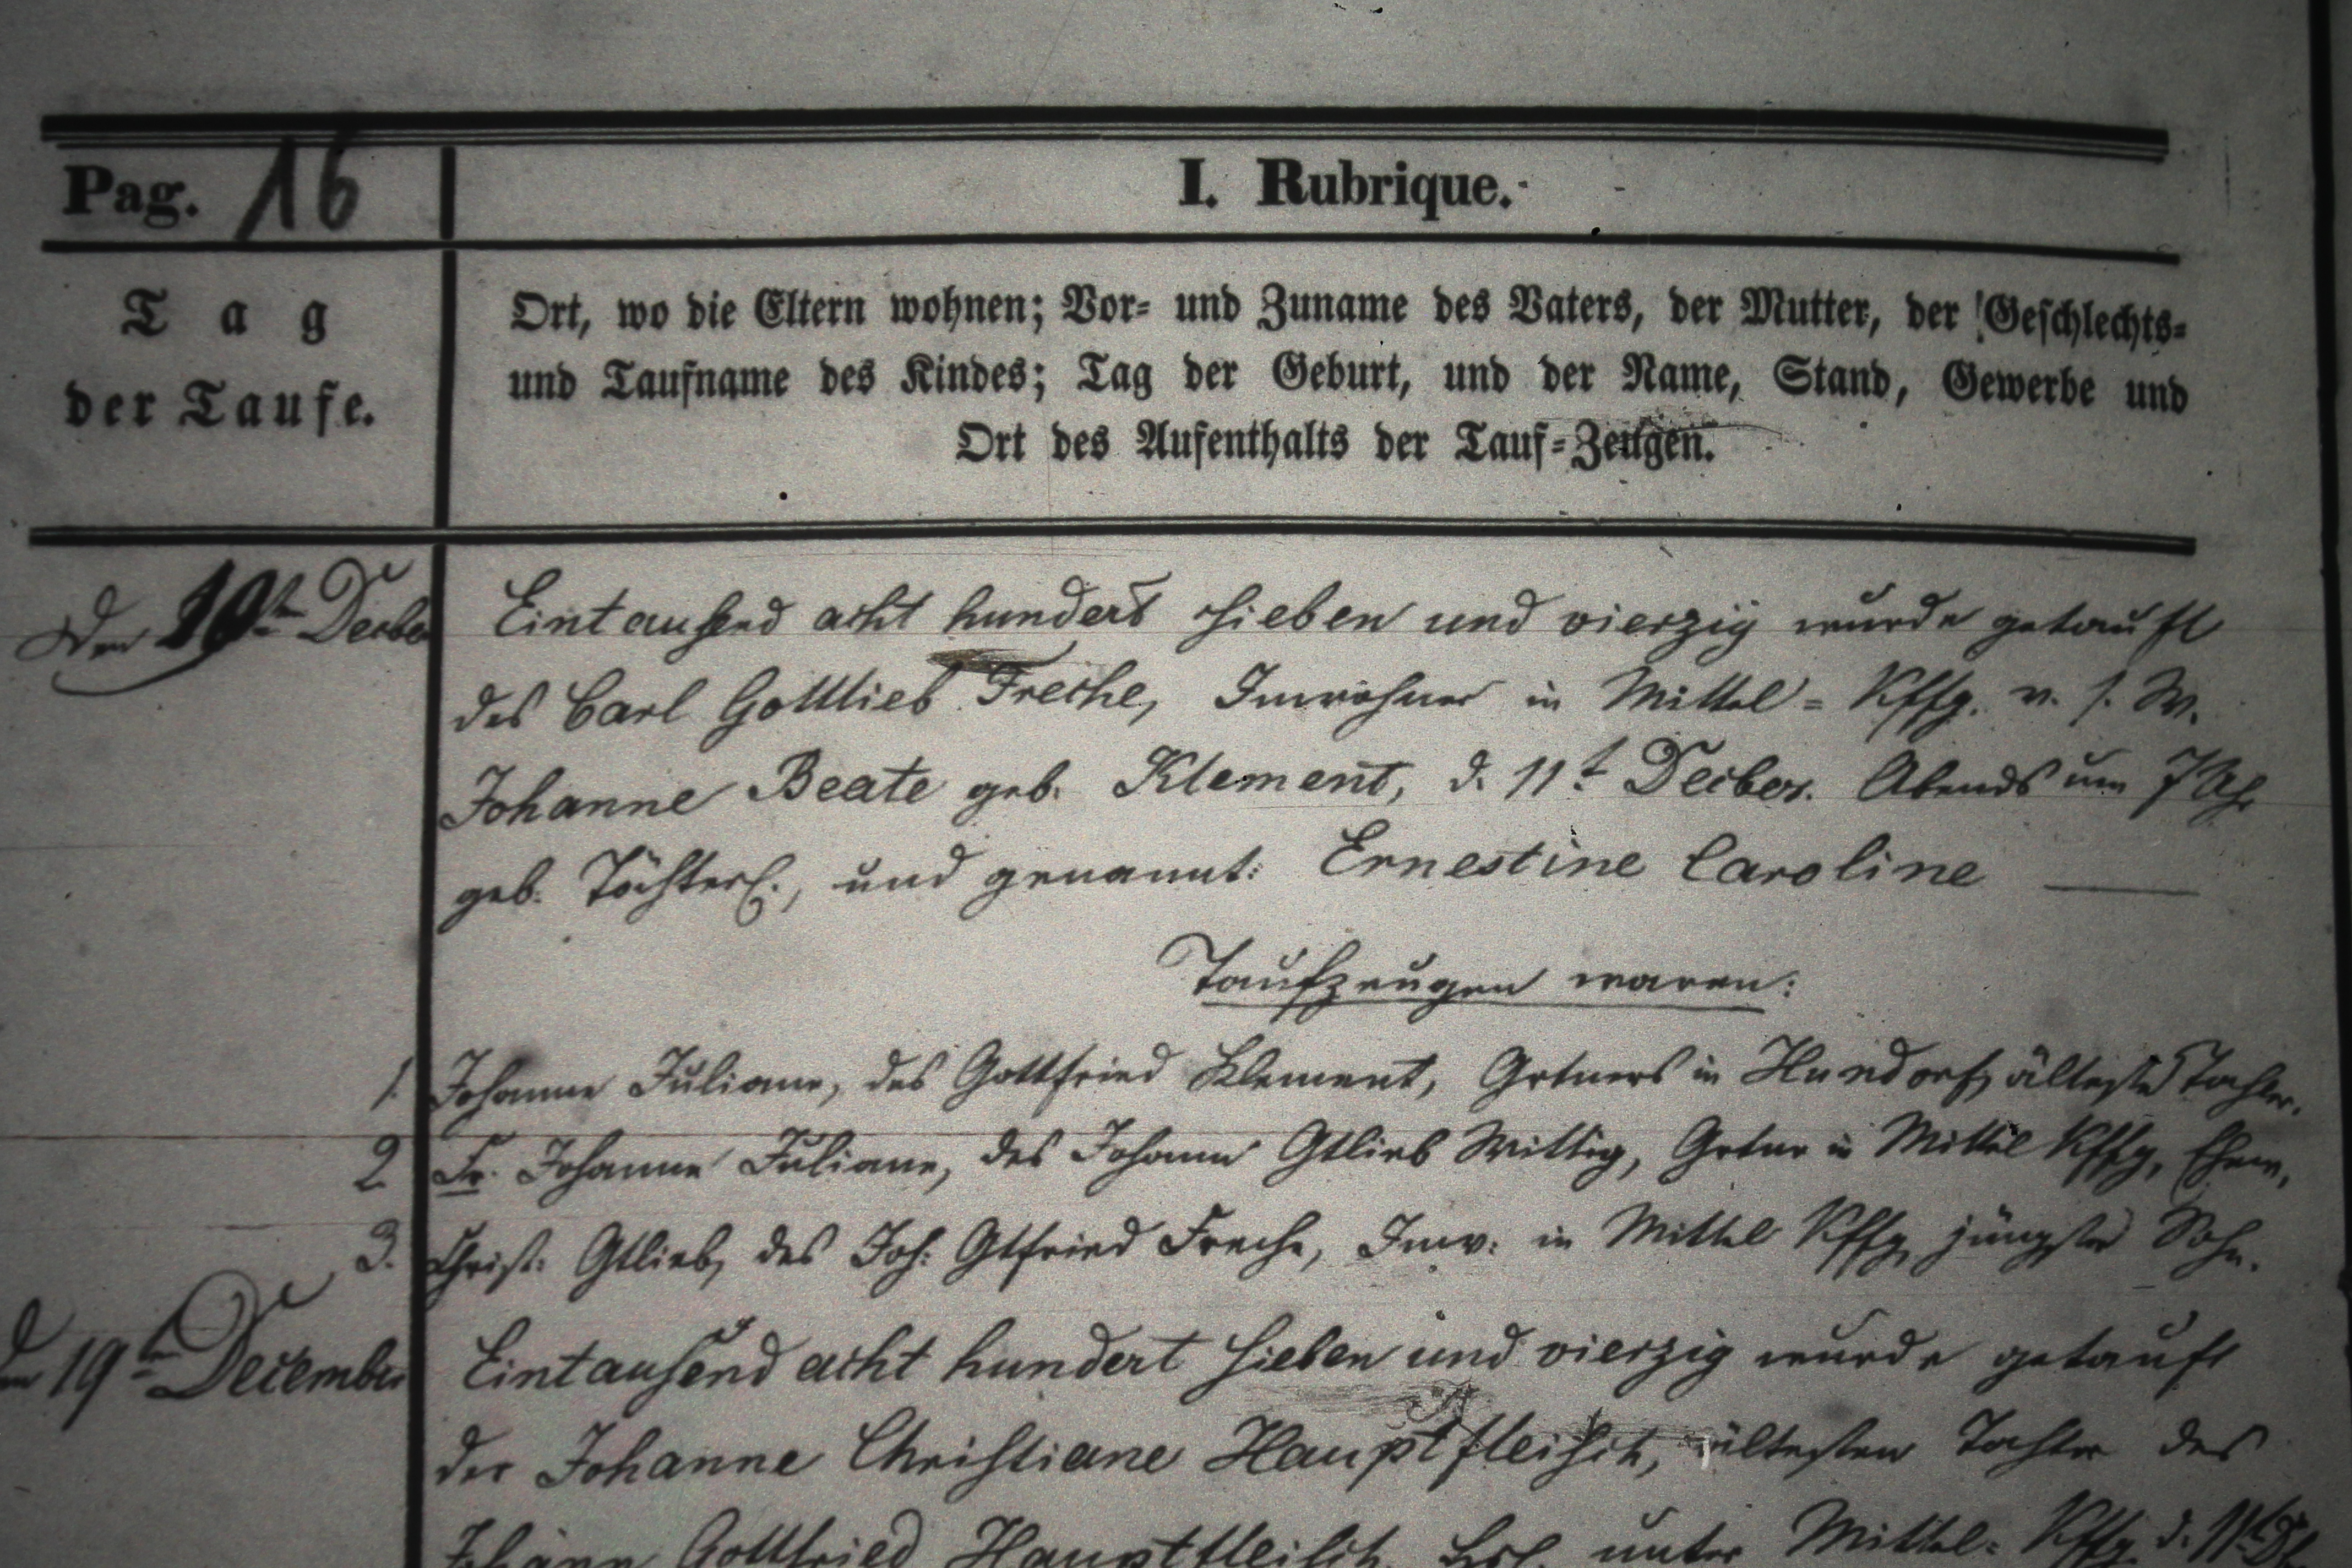 Pag. 16
I. Rubrique.
Tag
der Taufe.
Ort, wo die Eltern wohnen; Vor- und Zuname des Vaters, der Mutter, der Geschlechts-
und Taufname des Kindes; Tag der Geburt, und der Name, Stand, Gewerbe und
Ort des Aufenthalts der Tauf-Zeugen.
Den 19t Decber
Eintausend acht hundert sieben und vierzig wurde getauft
des Carl Gottlieb Freche, Inwohner in Mittel-Kffg. v. s. W.
Johanne Beate geb. Klement, d. 11t Decber. Abends um 7 Uhr
geb. Töchterl., und genannt: Ernestine Caroline
Taufzeugen waren:
1. Johanne Juliane, des Gottfried Klement, Grtners in Hundorf, älteste Tochter.
2 Fr. Johanne Juliane, des Johann Gtlieb Wittig, Grtner in Mittel Kffg, Ehew.
3. Christ. Gtlieb, des Joh. Gtfried Freche, Inw. in Mittel Kffg jüngster Sohn.
19ten December
Eintausend acht hundert sieben und vierzig wurde getauft
der Johanne Christiane Hauptfleisch, ältesten Tochter des
Johann Gottfried Hauptfleisch, unter Mittel-Kffg d. 11t